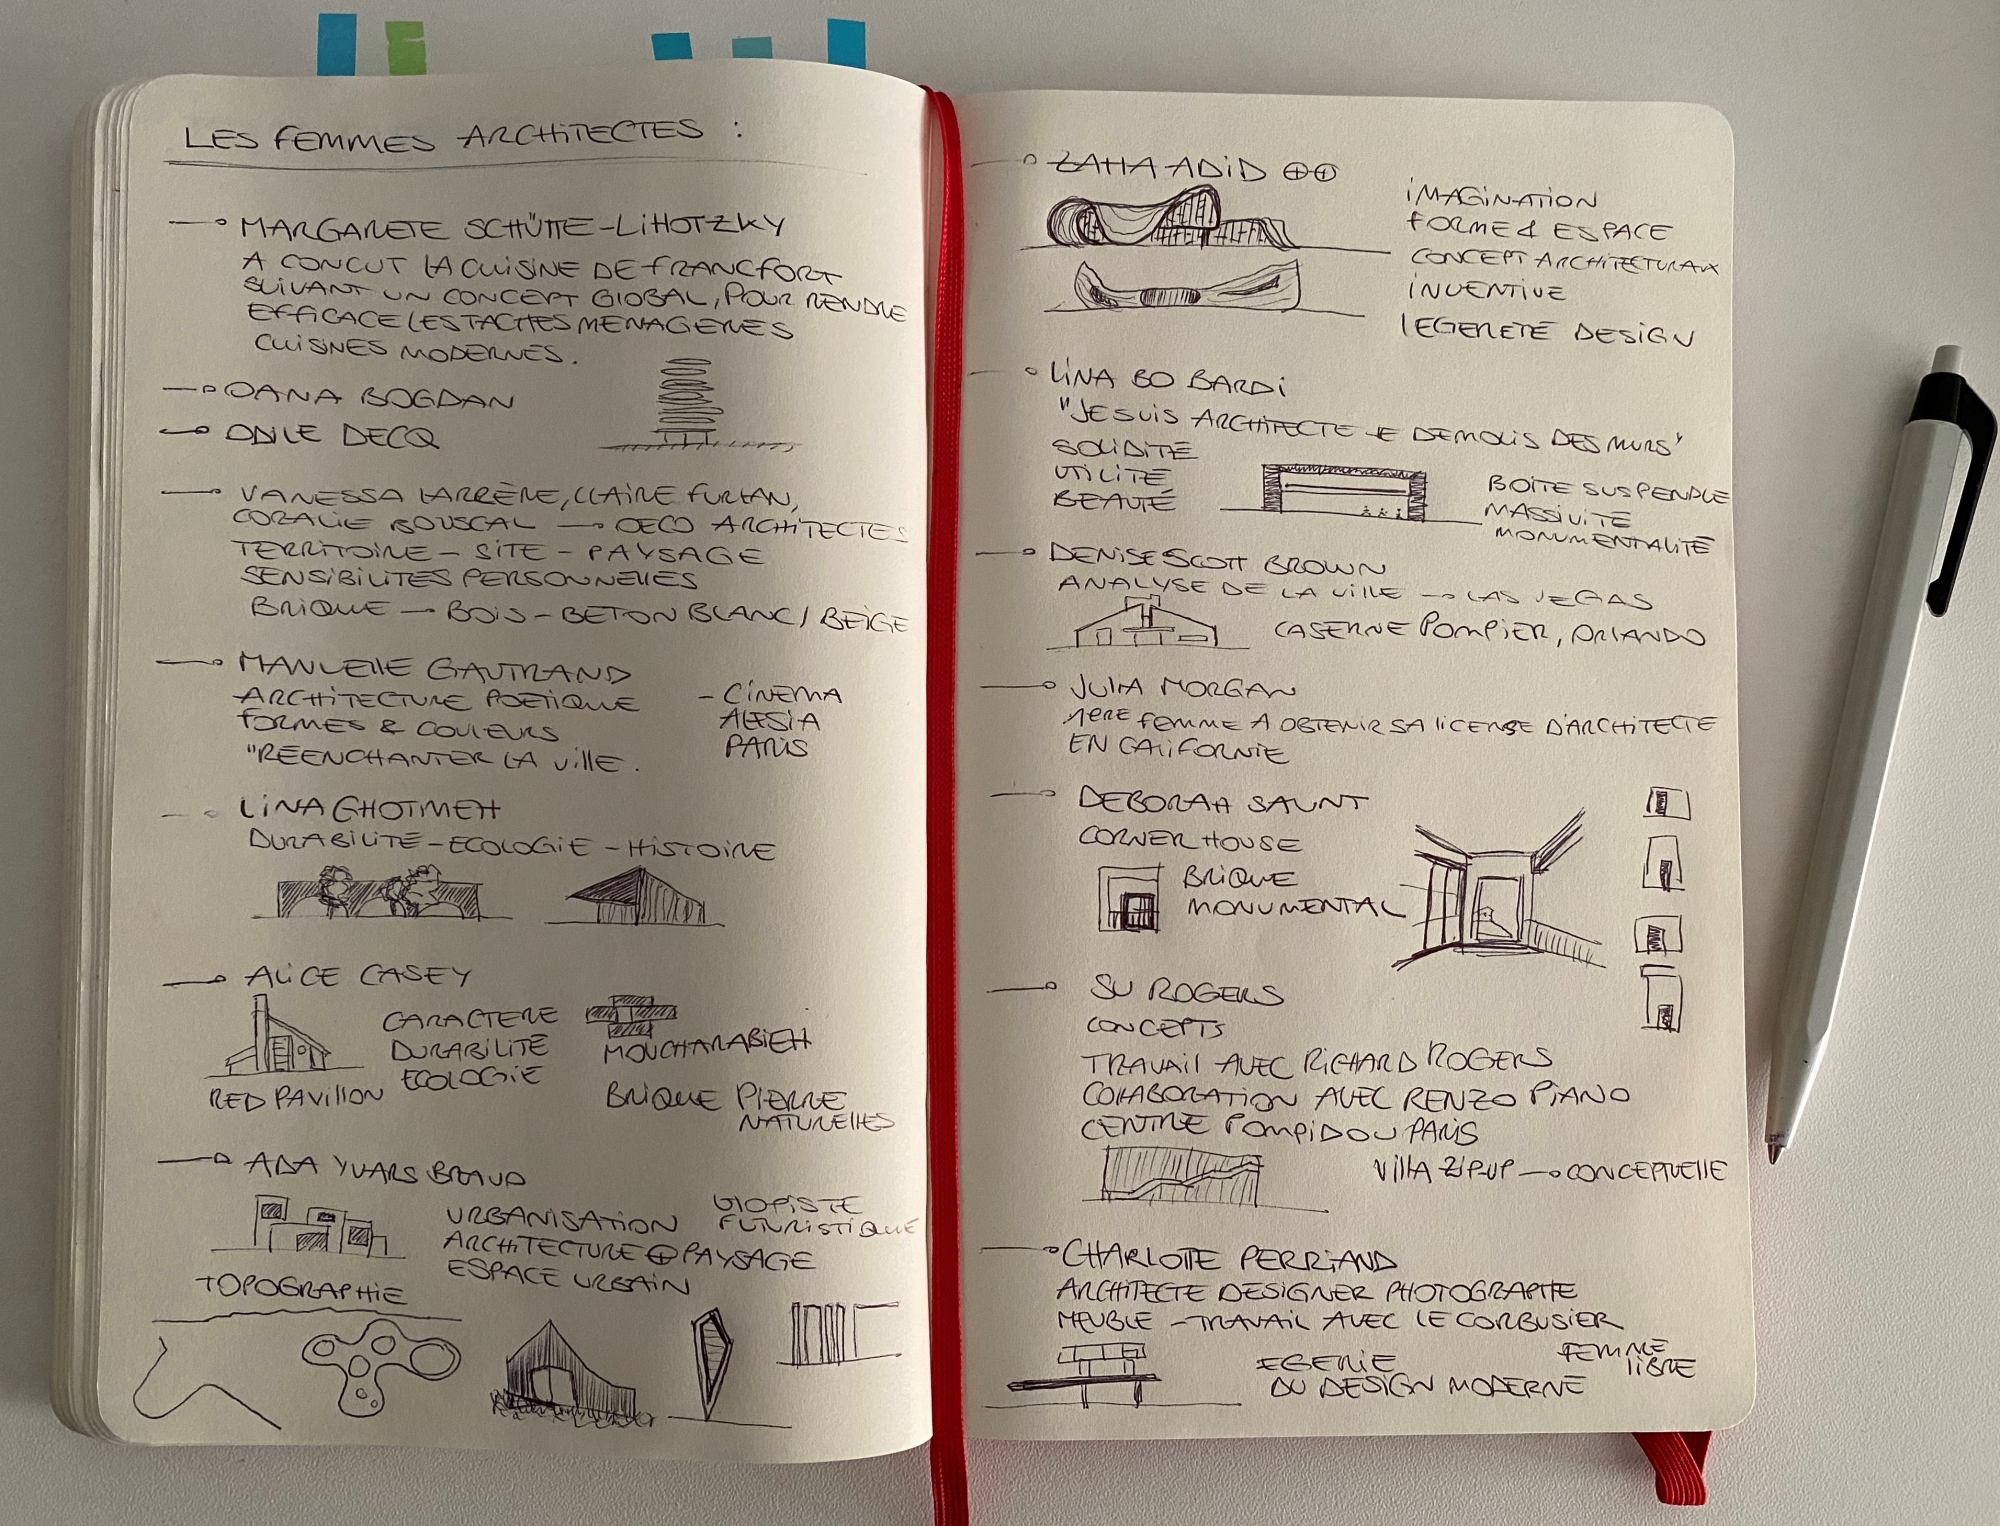 LES FEMMES ARCHITECTES :
MARGARETE SCHÜTTE-LIHOTZKY
A CONCUT LA CUISINE DE FRANCFORT
SUIVANT UN CONCEPT GLOBAL, POUR RENDRE
EFFICACE LES TACHES MENAGERES
CUISINES MODERNES.
OANA BOGDAN
ODILE DECQ
VANESSA LARRÈRE, CLAIRE FURLAN,
CORALIE BOUSCAL → OECO ARCHITECTES
TERRITOIRE - SITE - PAYSAGE
SENSIBILITES PERSONNELLES
BRIQUE - BOIS - BETON BLANC / BEIGE
MANUELLE GAUTRAND
ARCHITECTURE POETIQUE
FORMES & COULEURS
"REENCHANTER LA VILLE.
- CINEMA
ALESIA
PARIS
LINA GHOTMEH
DURABILITÉ - ECOLOGIE - HISTOIRE
ALICE CASEY
CARACTERE
DURABILITÉ
ECOLOGIE
RED PAVILLON
MOUCHARABIEH
BRIQUE PIERRE
NATURELLES
ADA YVARS BRAVO
URBANISATION
ARCHITECTURE ⊕ PAYSAGE
ESPACE URBAIN
UTOPISTE
FUTURISTIQUE
TOPOGRAPHIE
ZAHA ADID ⊕⊕
IMAGINATION
FORME & ESPACE
CONCEPT ARCHITECTURAUX
INVENTIVE
LEGERETÉ DESIGN
LINA BO BARDI
"JE SUIS ARCHITECTE JE DEMOLIS DES MURS"
SOLIDITÉ
UTILITÉ
BEAUTÉ
BOITE SUSPENDUE
MASSIVITÉ
MONUMENTALITÉ
DENISE SCOTT BROWN
ANALYSE DE LA VILLE → LAS VEGAS
CASERNE POMPIER, ORLANDO
JULIA MORGAN
1ERE FEMME A OBTENIR SA LICENSE D'ARCHITECTE
EN CALIFORNIE
DEBORAH SAUNT
CORNER HOUSE
BRIQUE
MONUMENTAL
SU ROGERS
CONCEPTS
TRAVAIL AVEC RICHARD ROGERS
COLLABORATION AVEC RENZO PIANO
CENTRE POMPIDOU PARIS
VILLA ZIP-UP → CONCEPTUELLE
CHARLOTTE PERRIAND
ARCHITECTE DESIGNER PHOTOGRAPHE
MEUBLE - TRAVAIL AVEC LE CORBUSIER
EGERIE
DU DESIGN MODERNE
FEMME
LIBRE